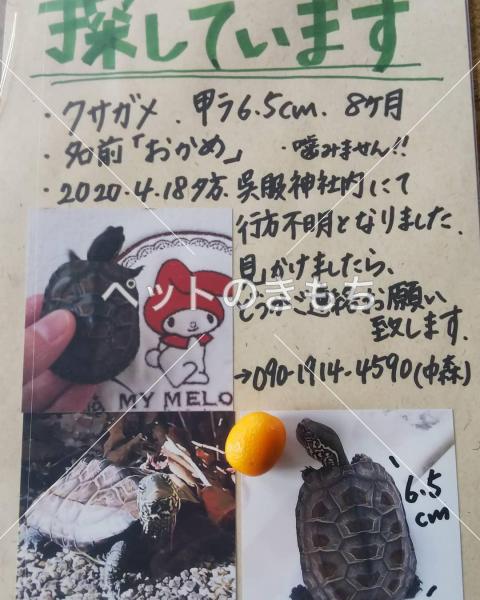 探しています
・クサガメ．甲ラ6.5cm．8ケ月
・名前「おかめ」 ・噛みません!!
・2020・4・18夕方 呉服神社内にて
行方不明となりました．
見かけましたら、
どうかご連絡お願い
致します．
→090-1914-4590(中森)
ペットのきもち
MY MELO
6.5
cm